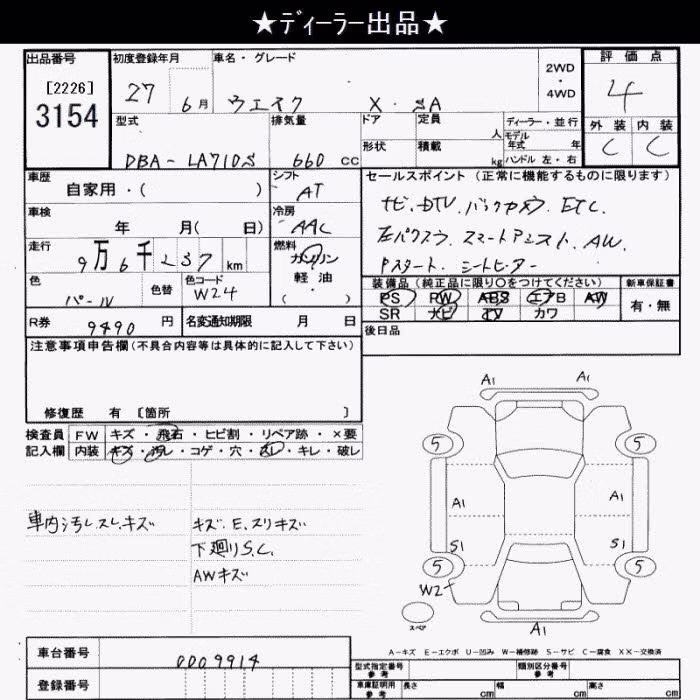 ★ディーラー出品★
出品番号 初度登録年月 車名・グレード 2WD・4WD 評価点
[2226] 27 6月 ウエイク X・SA 4
3154
型式 排気量 ドア 定員 人 ディーラー・並行 外装 内装
DBA-LA710S 660cc 形状 積載 kg モデル年式 年 C C
ハンドル 左・右
車歴 シフト セールスポイント(正常に機能するものに限ります)
自家用・( ) AT ナビ.DTV.バックカメラ.ETC.
車検 冷房
年 月( 日) AAC 左パワスラ.スマートアシスト.AW.
走行 燃料
9万6千237km ガソリン Pスタート.シートヒーター
軽油
( )
色 色替 色コード 装備品(純正品に限り○をつけてください) 新車保証書
パール W24 PS PW ABS エアB AW 有・無
SR ナビ TV カワ
R券 9490円 名変通知期限 月 日 後日品
注意事項申告欄(不具合内容等は具体的に記入して下さい)
修復歴 有 [箇所 ]
検査員 FW キズ・飛石・ヒビ割・リペア跡・×要
記入欄 内装 キズ・汚レ・コゲ・穴・スレ・キレ・破レ
A1 A1
5 5
A1 A1
S1 S1
5 5
W2
スペア
A1
車内汚レスレキズ キズ E.スリキズ
下廻りS.C.
AWキズ
A-キズ E-エクボ U-凹み W-補修跡 S-サビ C-腐食 XX-交換済
車台番号 0009914 型式指定番号 参考 類別区分番号 参考
登録番号 車庫証明用 参考 長さ cm 幅 cm 高さ cm